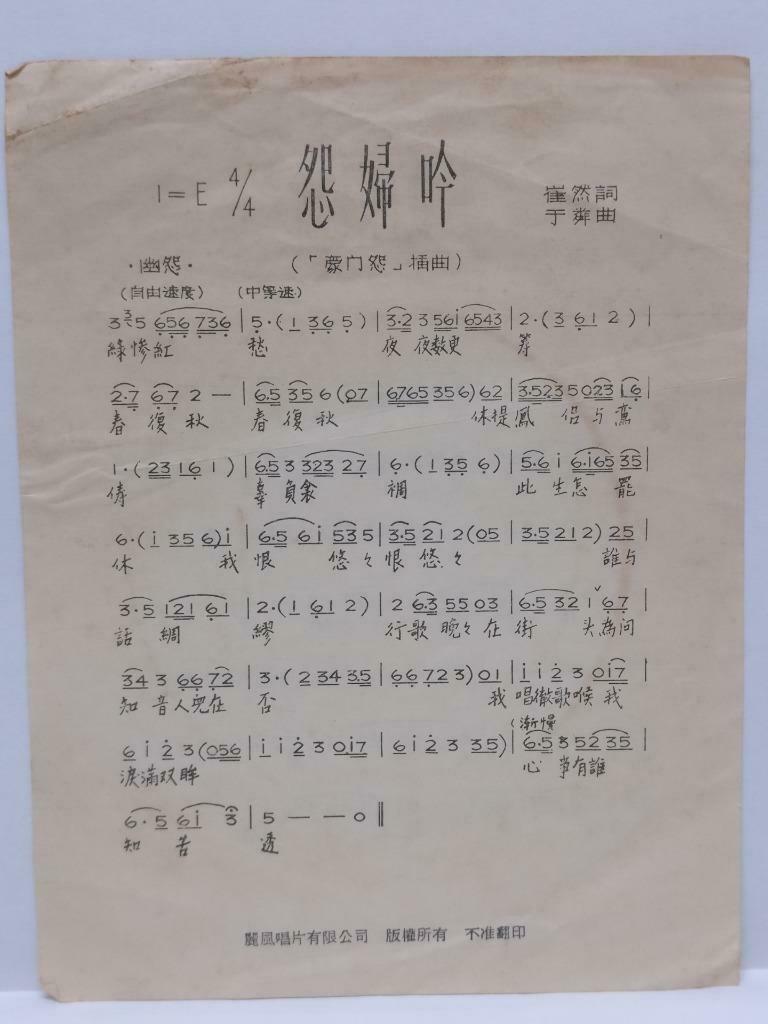 1=E 4/4 怨婦吟 崔然詞
于粦曲
·幽怨· (「豪门怨」插曲)
(自由速度) (中等速)
3 5 656 736 | 5·(1 36 5) | 3·2 3 561 6543 | 2·(3 61 2) |
綠慘紅 愁 夜 夜数更 筹
2·7 67 2 — | 6·5 35 6 (07 | 6765 356) 62 | 3·523 5 023 16 |
春 復 秋 春 復 秋 休提鳳 侣 与 鸞
1·(23 16 1) | 6·5 3 323 27 | 6·(1 35 6) | 5·6 i 6·i65 35 |
俦 辜 負衾 裯 此 生怎 罷
6·(i 35 6) i | 6·5 6i 53 5 | 3·5 21 2 (05 | 3·5 21 2) 25 |
休 我 恨 悠々 恨 悠々 誰与
3·5 121 61 | 2·(1 61 2) | 2 6·3 55 03 | 6·5 32 1ˇ67 |
話 綢 繆 行歌 晚々 在 街 头為问
34 3 6672 | 3·(2 34 35 | 66 72 3) 01 | i i 2 3 0i7 |
知 音人兜在 否 我 唱徹歌喉 我
(渐慢
6 i 2 3 (056 | i i 2 3 0i7 | 6 i 2 3 35) | 6·5 3 52 35 |
淚滿双眸 心 事有誰
6·5 6i 3 | 5 — — 0 ‖
知 告 透
麗風唱片有限公司 版權所有 不准翻印